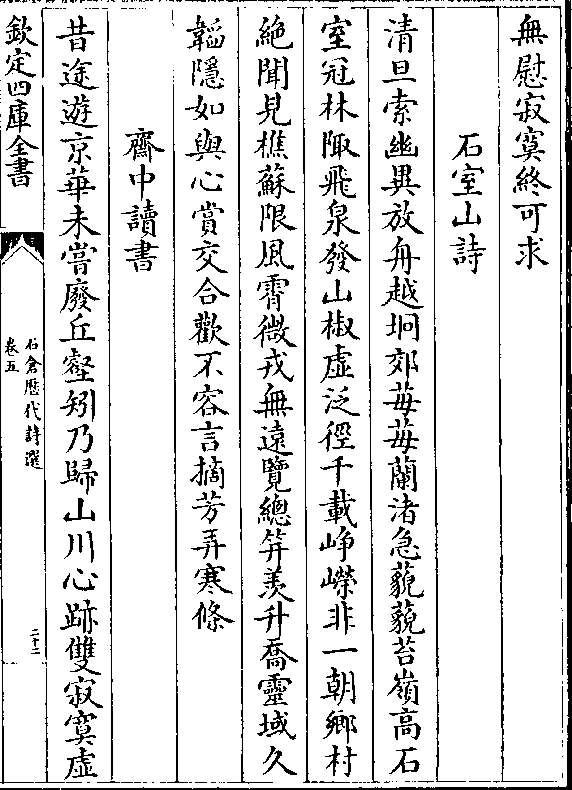 無慰寂寞終可求
石室山詩
清旦索幽異放舟越坰郊莓莓蘭渚急藐藐苔嶺高石
室冠林陬飛泉發山椒虛泛徑千載崢嶸非一朝鄉村
絶聞見樵蘇限風霄微戎無遠覽總笄羡升喬靈域久
韜隱如與心賞交合歡不容言摘芳弄寒條
齋中讀書
昔途遊京華未嘗廢丘壑矧乃歸山川心跡雙寂寞虛
欽定四庫全書
石倉歷代詩選
卷五
二十二